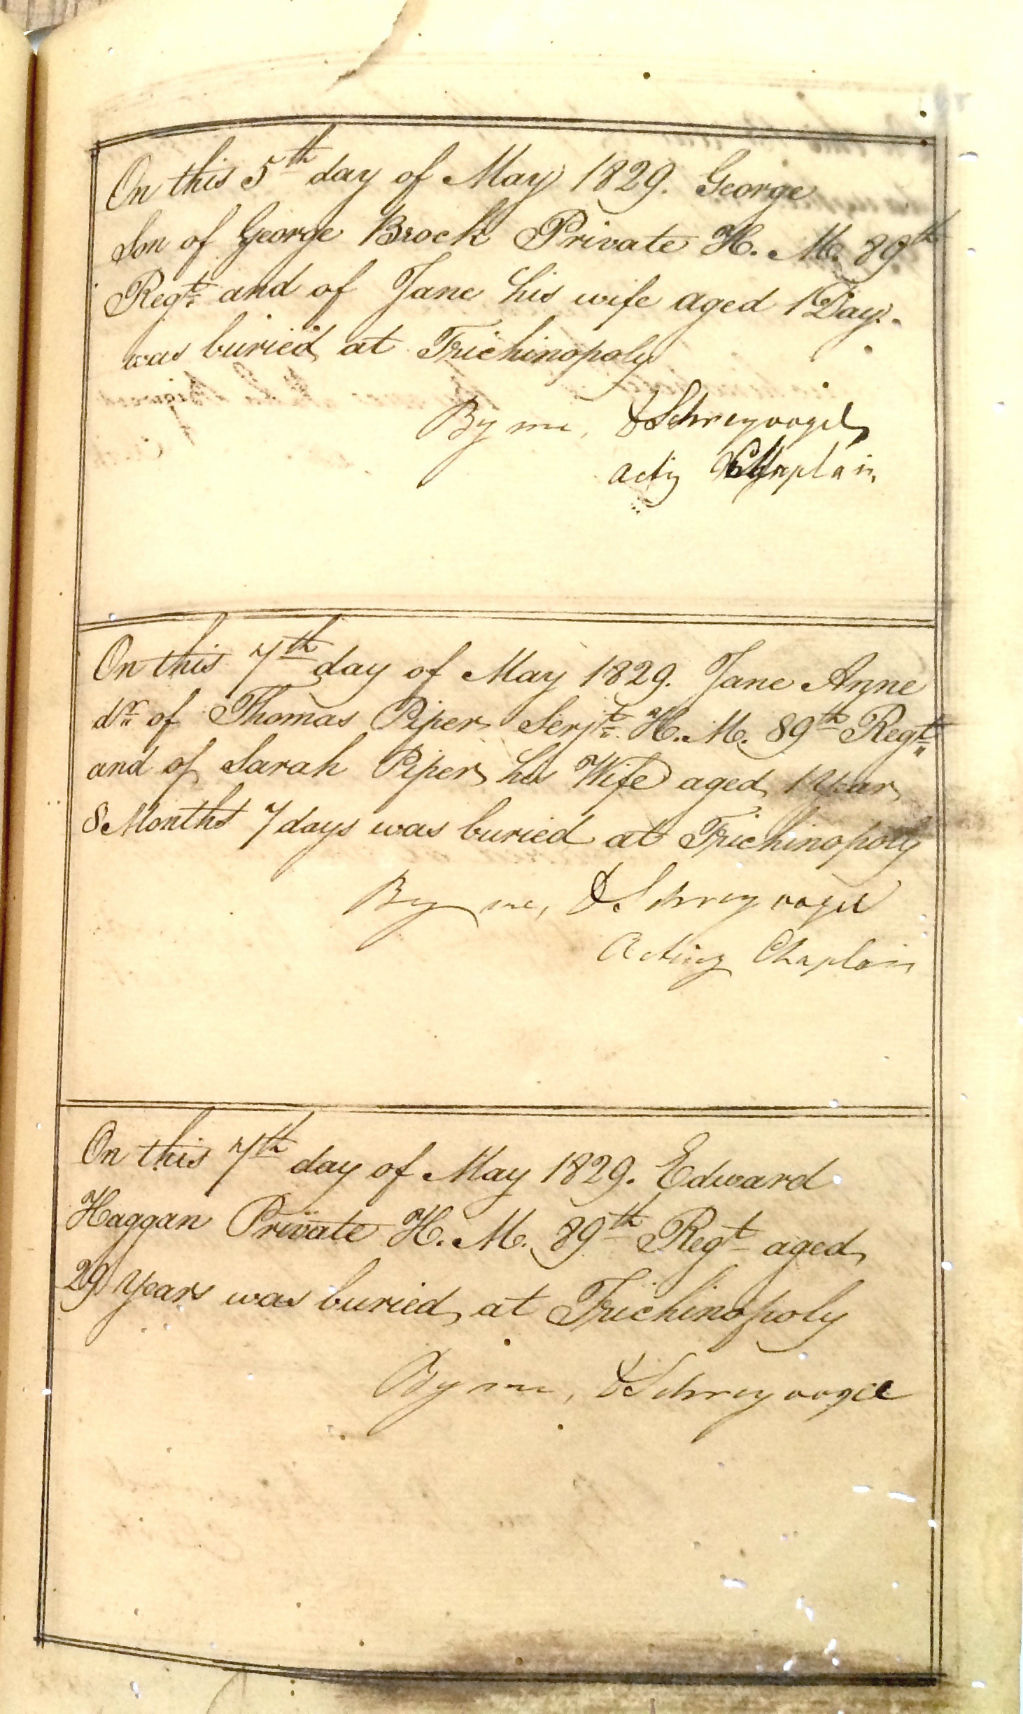 On this 5th day of May 1829. George
Son of George Brock Private H. M. 89th
Regt. and of Jane his wife aged 1 Day.
was buried at Trichinopoly
By me, DSchreyvogel
Actg Chaplain
On this 7th day of May 1829. Jane Anne
dr. of Thomas Piper Serjt. H. M. 89th Regt.
and of Sarah Piper his Wife aged 1 Year
8 Months 7 days was buried at Trichinopoly
By me, DSchreyvogel
Acting Chaplain
On this 7th day of May 1829. Edward
Haggan Private H. M. 89th Regt aged
29 Years was buried at Trichinopoly
By me, DSchreyvogel